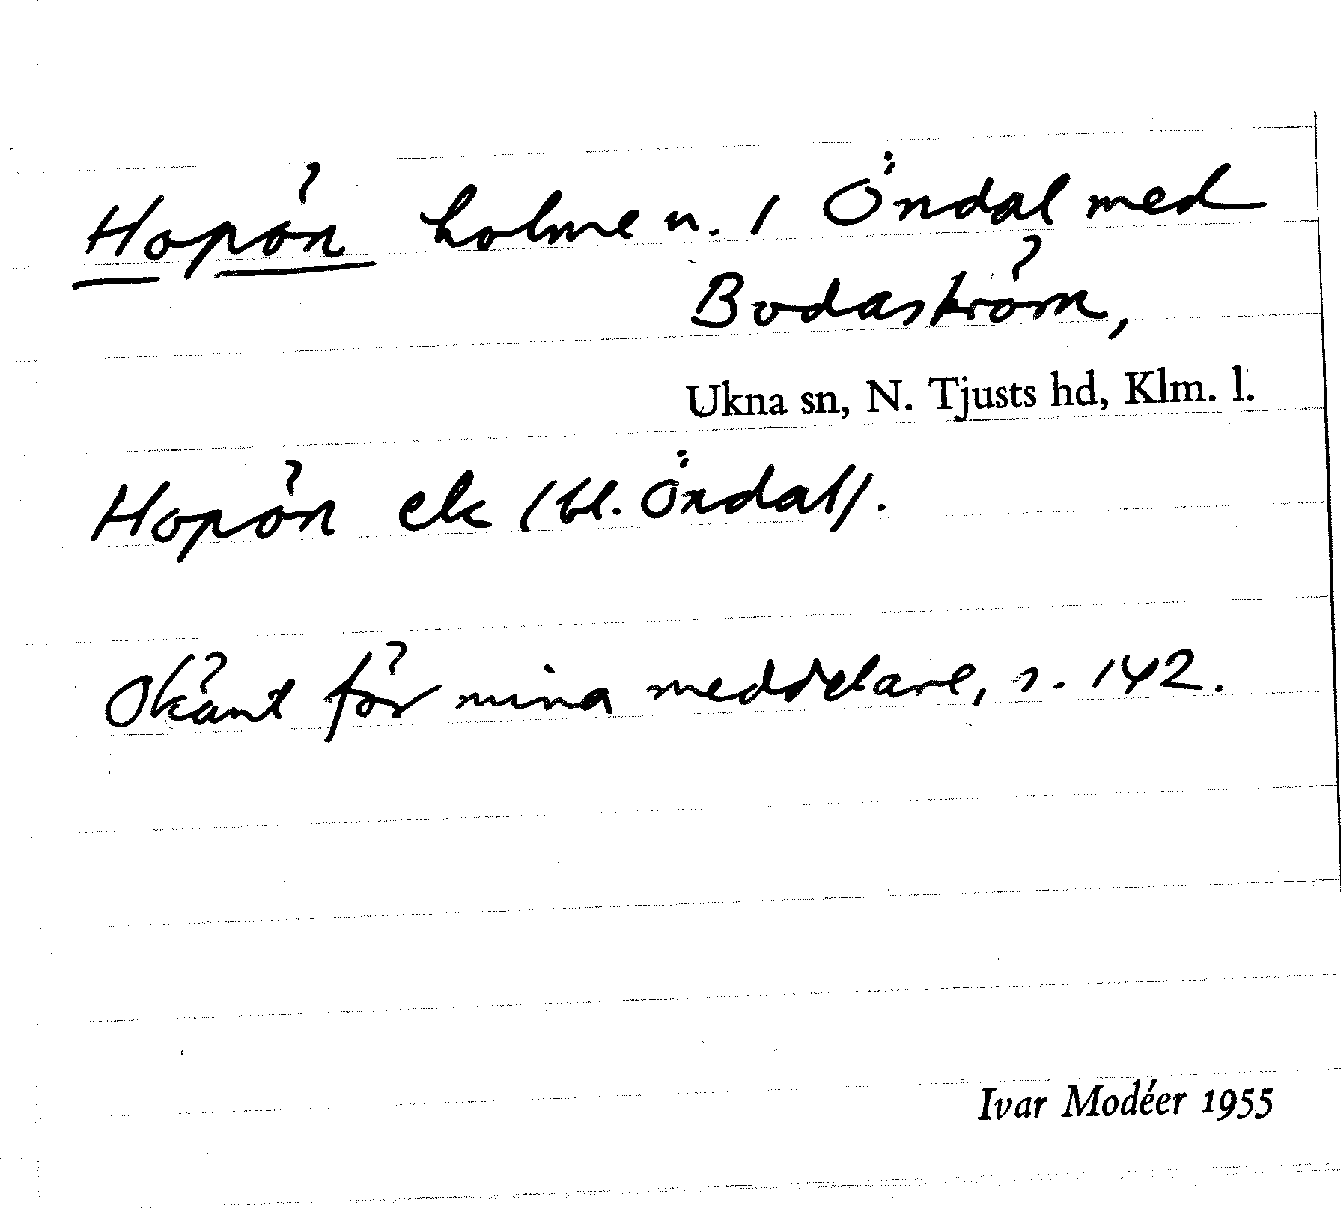 Hopön holme n. i Öndal med
Bodaström,
Ukna sn, N. Tjusts hd, Klm. l.
Hopön ek (bl. Öndal).
Okänt för mina meddelare, s. 142.
Ivar Modéer 1955